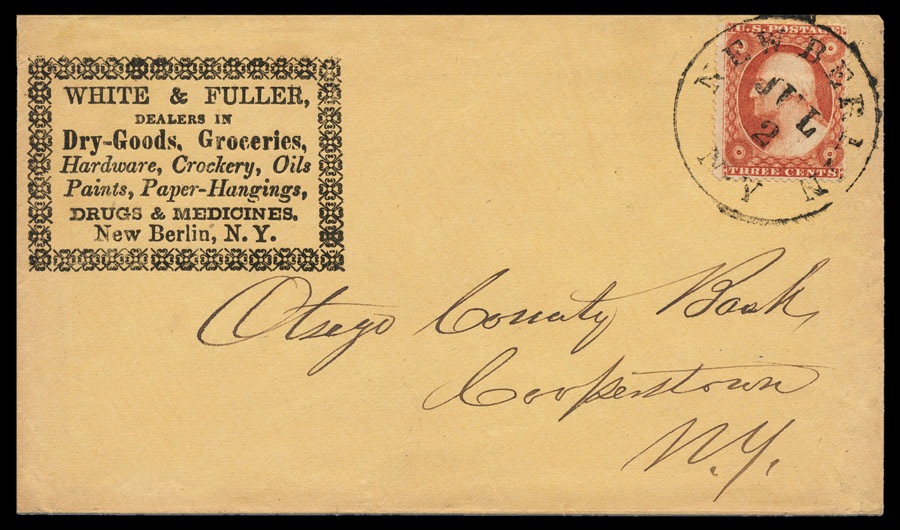 WHITE & FULLER,
DEALERS IN
Dry-Goods, Groceries,
Hardware, Crockery, Oils
Paints, Paper-Hangings,
DRUGS & MEDICINES.
New Berlin, N. Y.
U.S. POSTAGE
THREE CENTS
NEW BERLIN
JUL
2
N.Y.
Otsego County Bank,
Cooperstown
N.Y.